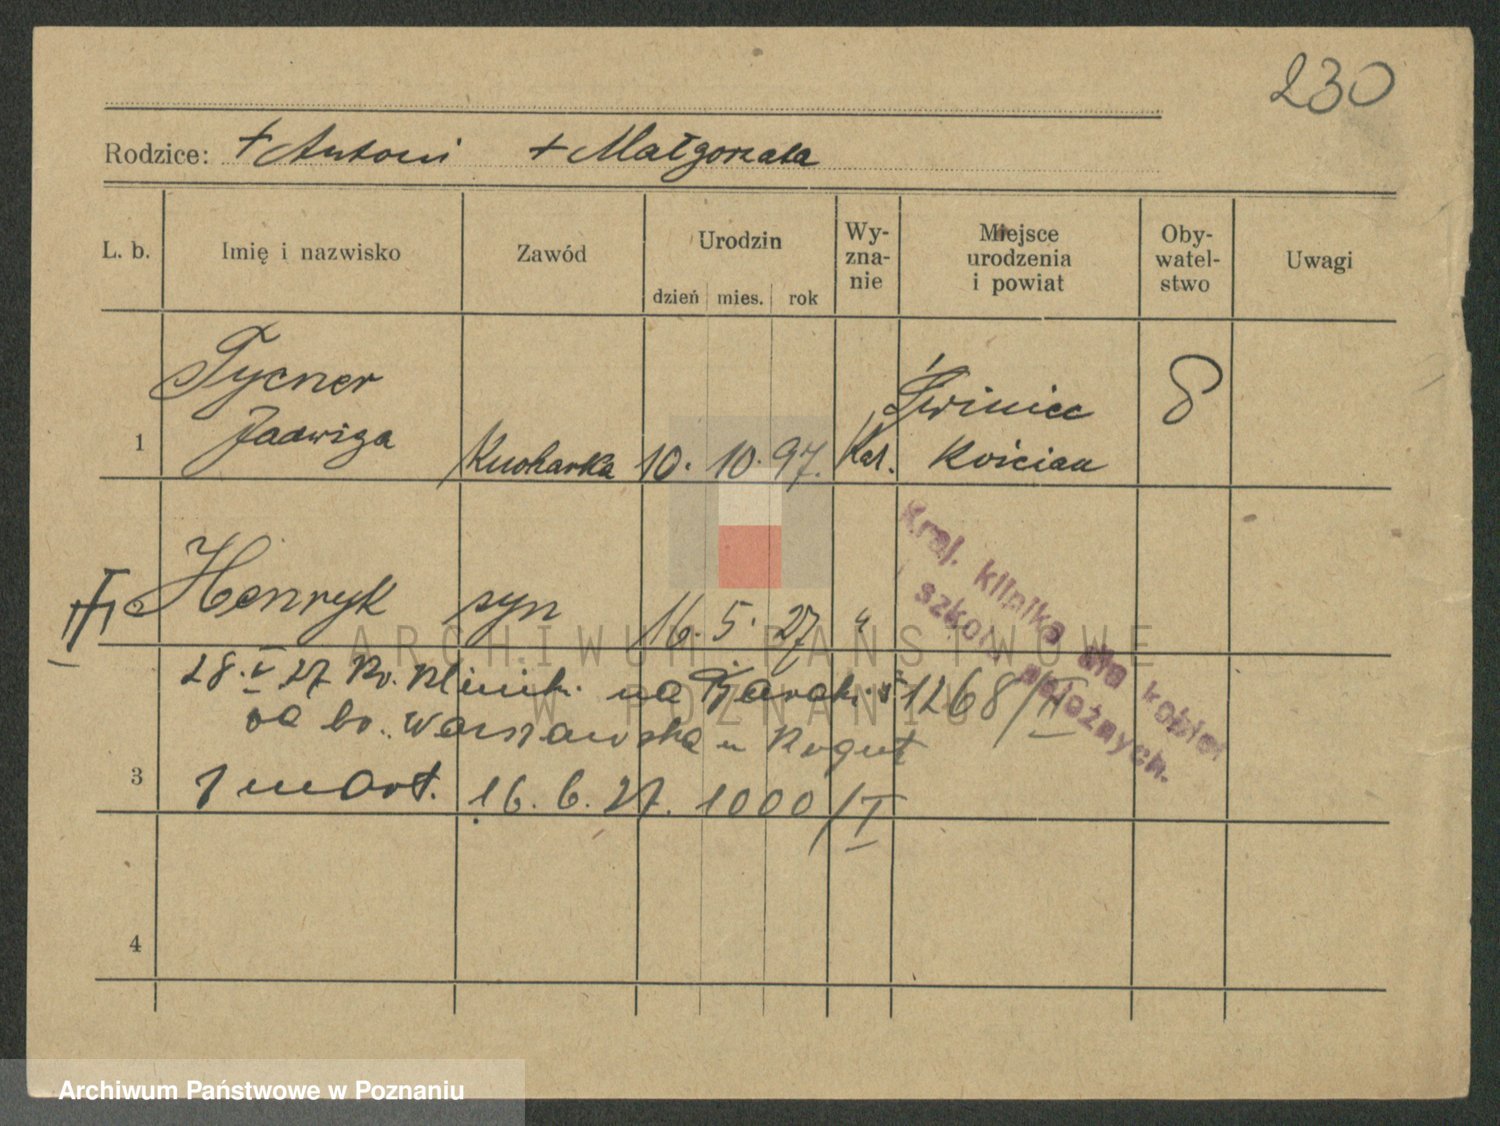 230
Rodzice: + Antoni + Małgorzata
L. b. Imię i nazwisko Zawód Urodzin dzień mies. rok Wy-zna-nie Miejsce urodzenia i powiat Oby-watel-stwo Uwagi
Tycner Świniec
1 Jadwiga Kucharka 10. 10. 97. Kat. Kościan
Henryk syn 16. 5. 27 "
Kraj. klinika dla kobiet
szkoła położnych.
28. V 27 Kr. Klinik. na 1268/II
Warszawska u
3 16. 6. 27. 1000/I
4
ARCHIWUM PAŃSTWOWE
W POZNANIU
Archiwum Państwowe w Poznaniu